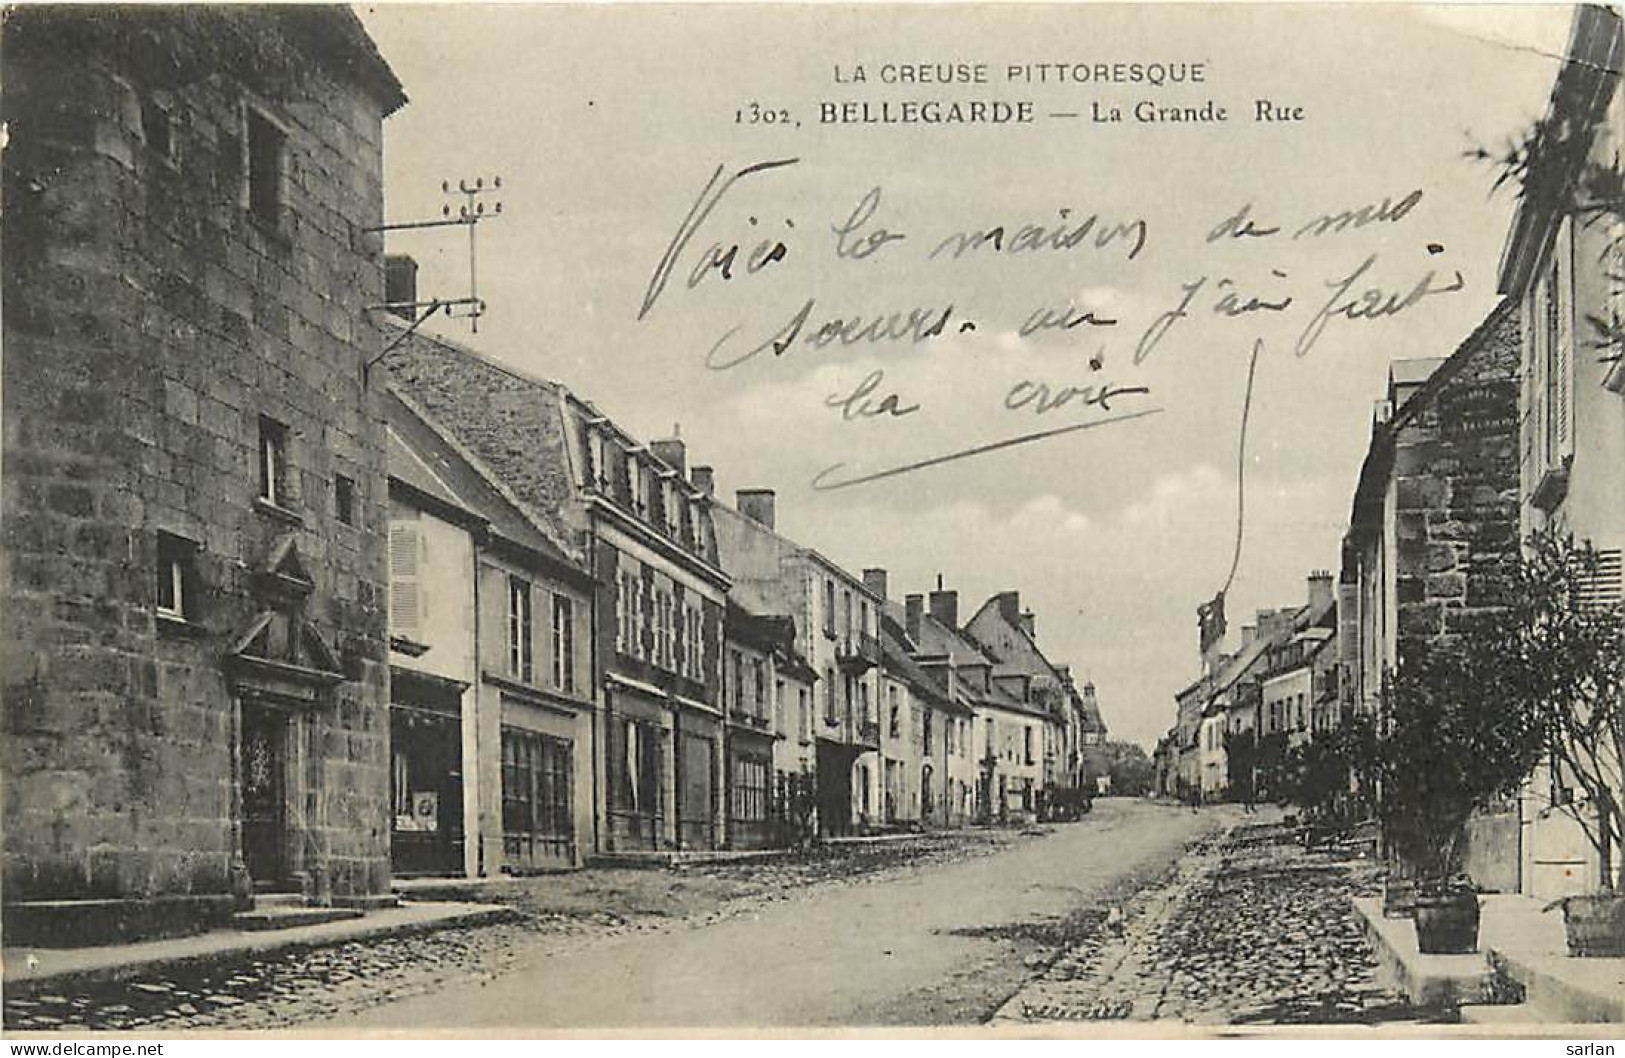 LA CREUSE PITTORESQUE
1302, BELLEGARDE — La Grande Rue
Voici la maison de mes
soeurs. ou j'ai fait
la croix
sarlan